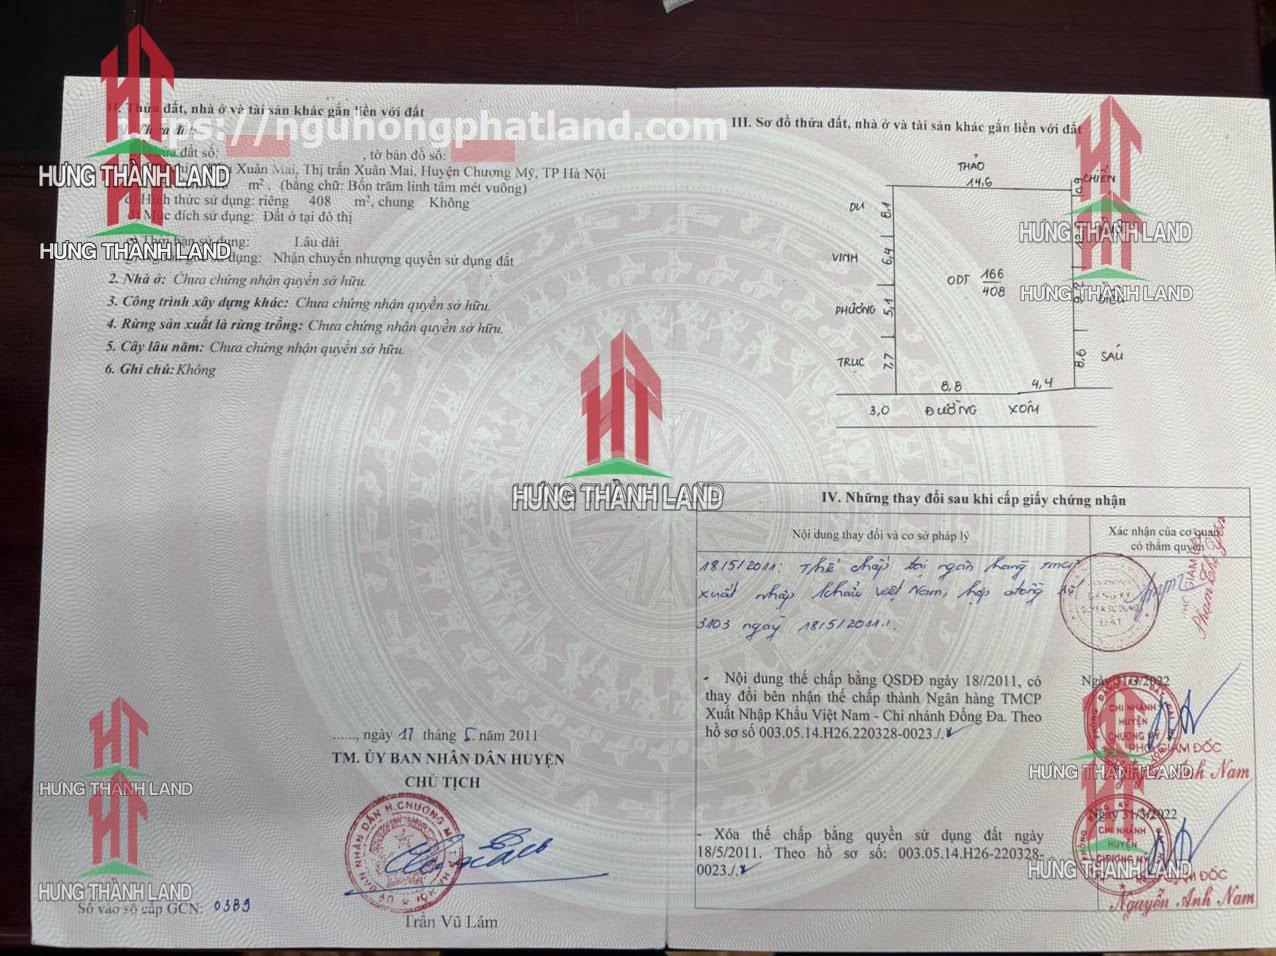 II. Thửa đất, nhà ở và tài sản khác gắn liền với đất
https://nguhongphatland.com
Thửa đất số: , tờ bản đồ số:
Xuân Mai, Thị trấn Xuân Mai, Huyện Chương Mỹ, TP Hà Nội
m², (bằng chữ: Bốn trăm linh tám mét vuông)
Hình thức sử dụng: riêng 408 m², chung Không
Mục đích sử dụng: Đất ở tại đô thị
sử dụng: Lâu dài
sử dụng: Nhận chuyển nhượng quyền sử dụng đất
2. Nhà ở: Chưa chứng nhận quyền sở hữu.
3. Công trình xây dựng khác: Chưa chứng nhận quyền sở hữu.
4. Rừng sản xuất là rừng trồng: Chưa chứng nhận quyền sở hữu.
5. Cây lâu năm: Chưa chứng nhận quyền sở hữu.
6. Ghi chú: Không
HƯNG THÀNH LAND
HƯNG THÀNH LAND
......, ngày 17 tháng 5 năm 2011
TM. ỦY BAN NHÂN DÂN HUYỆN
CHỦ TỊCH
Trần Vũ Lâm
HƯNG THÀNH LAND
HƯNG THÀNH LAND
Số vào sổ cấp GCN: 0389
HƯNG THÀNH LAND
III. Sơ đồ thửa đất, nhà ở và tài sản khác gắn liền với đất
THẢO
14,6
0,9 CHIẾN
DU 8,1
VINH 6,4
ODT 166
408
PHƯƠNG 5,1
TRỤC 7,7
8,6 SÁU
8,8 4,4
3,0 ĐƯỜNG XÓM
HƯNG THÀNH LAND
HƯNG THÀNH LAND
IV. Những thay đổi sau khi cấp giấy chứng nhận
Nội dung thay đổi và cơ sở pháp lý
Xác nhận của cơ quan
có thẩm quyền
18/5/2011: Thế chấp tại ngân hàng TMCP
xuất nhập khẩu Việt Nam, hợp đồng số
3103 ngày 18/5/2011.
- Nội dung thế chấp bằng QSDĐ ngày 18//2011, có
thay đổi bên nhận thế chấp thành Ngân hàng TMCP
Xuất Nhập Khẩu Việt Nam - Chi nhánh Đống Đa. Theo
hồ sơ số 003.05.14.H26.220328-0023./.
Ngày 31/3/2022
CHI NHÁNH
HUYỆN
CHƯƠNG MỸ
PHÓ GIÁM ĐỐC
Nguyễn Anh Nam
HƯNG THÀNH LAND
- Xóa thế chấp bằng quyền sử dụng đất ngày
18/5/2011. Theo hồ sơ số: 003.05.14.H26-220328-
0023./.
Ngày 31/3/2022
CHI NHÁNH
HUYỆN
CHƯƠNG MỸ
GIÁM ĐỐC
Nguyễn Anh Nam
HƯNG THÀNH LAND